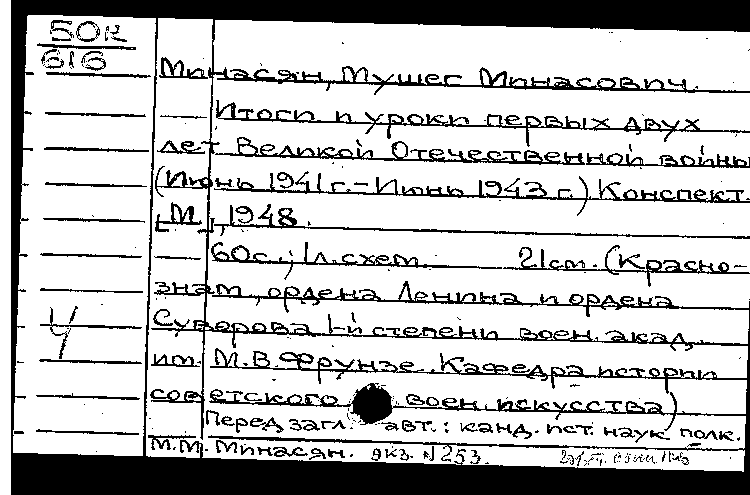 50к
616
Минасян, Мушег Минасович.
Итоги и уроки первых двух
лет Великой Отечественной войны
(Июнь 1941 г. - Июнь 1943 г.) Конспект.
[М.], 1948.
60 с.; 1 л. схем. 21 см. (Красно-
знам., ордена Ленина и ордена
Суворова 1-й степени воен. акад.
им. М.В. Фрунзе. Кафедра истории
советского воен. искусства)
Перед загл. авт.: канд. ист. наук полк.
М.М. Минасян. экз. №253.